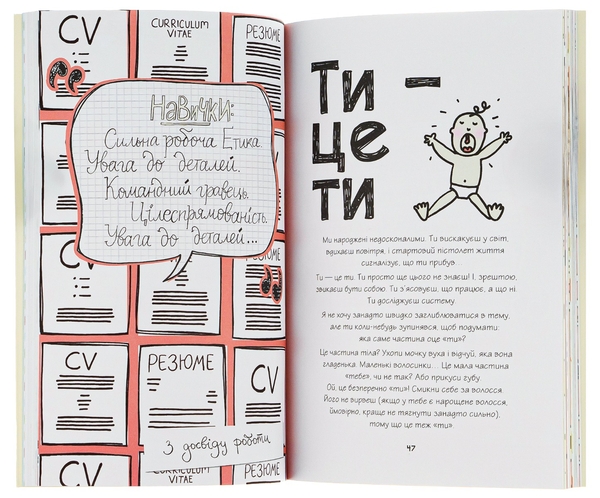 CV
CURRICULUM
VITAE
РЕЗЮМЕ
Навички:
Сильна робоча Етика.
Увага до деталей.
Командний гравець.
Цілеспрямованість.
Увага до деталей...
CV
РЕЗЮМЕ
CV
З досвіду роботи
CV
CURRICULUM
VITAE
РЕЗЮМЕ
Ти —
це
ти
Ми народжені недосконалими. Ти вискакуєш у світ,
вдихаєш повітря, і стартовий пістолет життя
сигналізує, що ти прибув.
Ти — це ти. Ти просто ще цього не знаєш! І, зрештою,
звикаєш бути собою. Ти з'ясовуєш, що працює, а що ні.
Ти досліджуєш систему.
Я не хочу занадто швидко заглиблюватися в тему,
але ти коли-небудь зупинявся, щоб подумати:
яка саме частина оце «ти»?
Це частина тіла? Ухопи мочку вуха і відчуй, яка вона
гладенька. Маленькі волосинки... Це мала частина
«тебе», чи не так? Або прикуси губу.
Ой, це безперечно «ти»! Смикни себе за волосся.
Його не вирвеш (якщо у тебе є нарощене волосся,
ймовірно, краще не тягнути занадто сильно),
тому що це теж «ти».
47